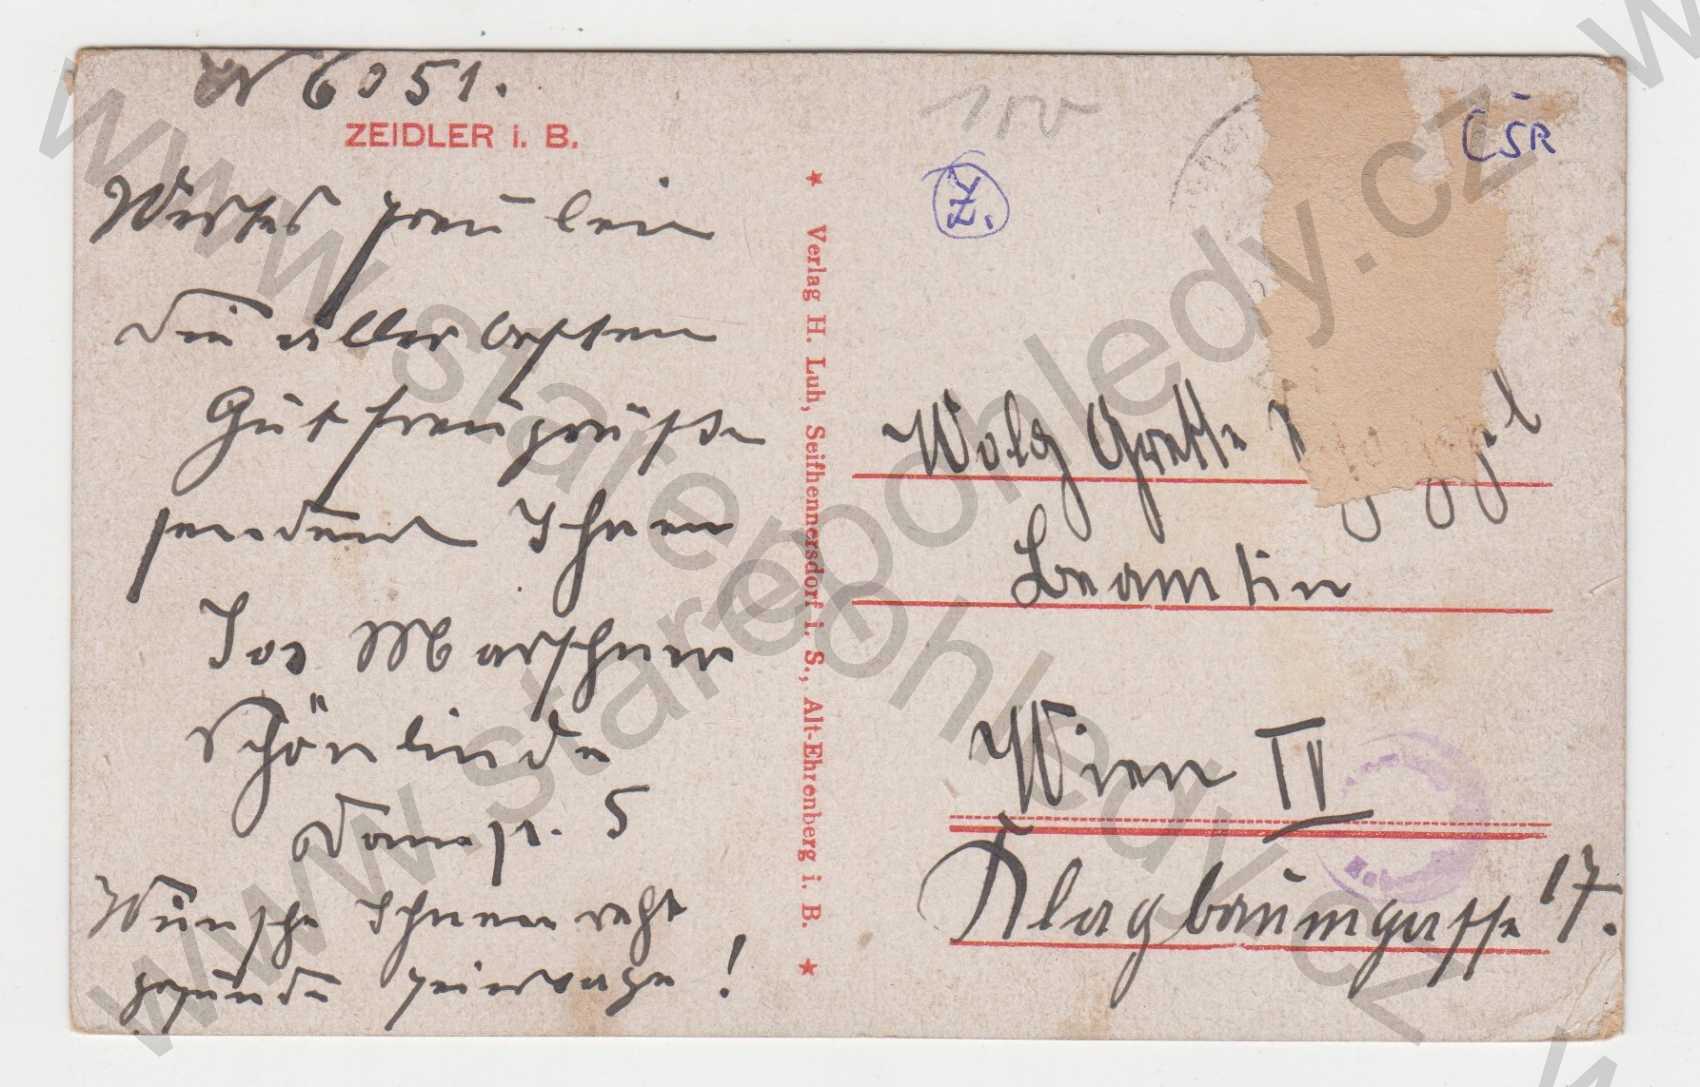 N 6051.
ZEIDLER i. B.
Wertes Fräulein
die allerbesten
Gutfreugrüße
sendend Ihnen
Jos Marschner
Schönlinde
Damsp. 5
Wünsche Ihnen recht
gesunde Feiertage!
★ Verlag H. Luh, Seifhennersdorf i. S., Alt-Ehrenberg i. B. ★
100
Z.
ČSR
Wolg Grette
Beamtin
Wien IV
Klagbaumgasse 17.
www.starepohledy.cz
www.starepohledy.cz